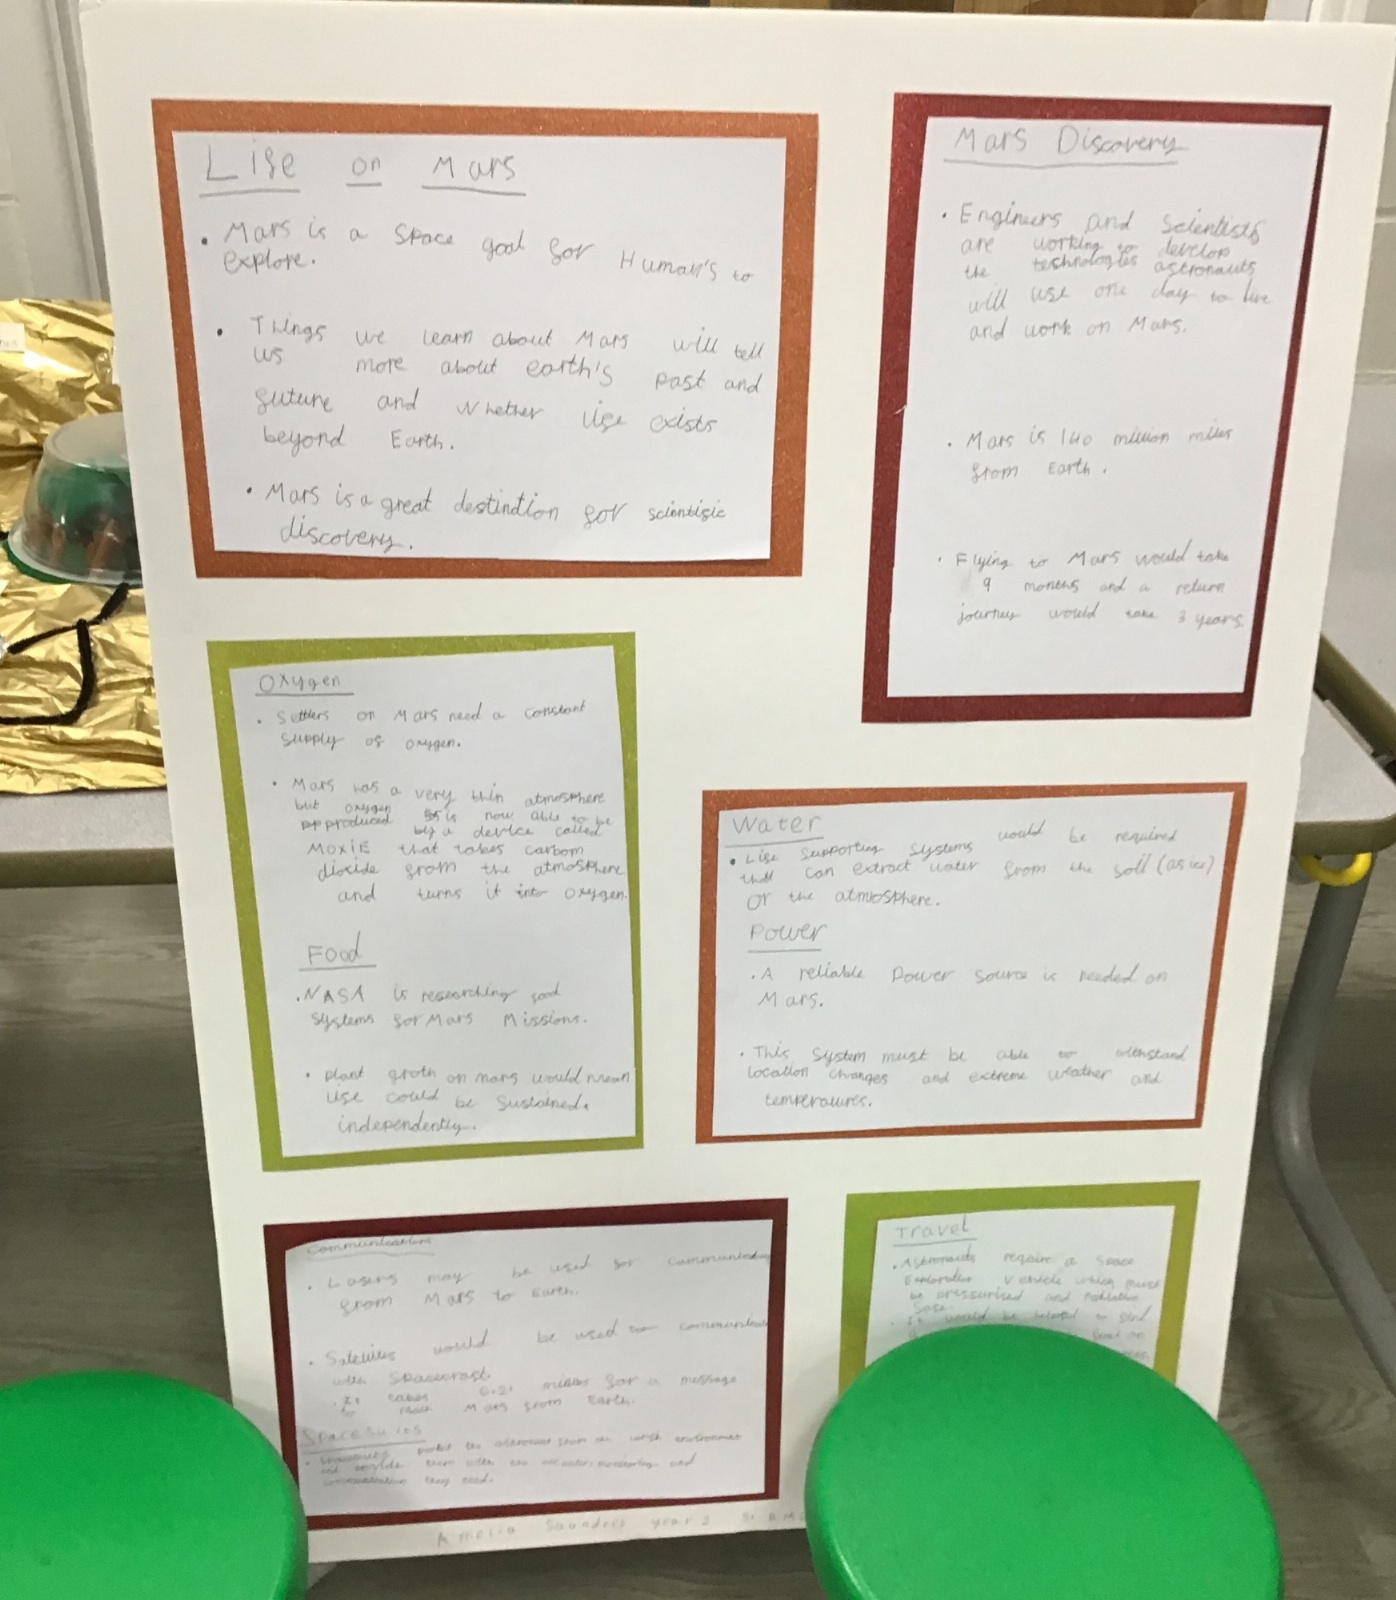 Life on Mars
• Mars is a space goal for Human's to
explore.
• Things we learn about Mars will tell
us more about earth's past and
future and whether life exists
beyond Earth.
• Mars is a great destindion for scientific
discovery.
Mars Discovery
• Engineers and Scientists
are working to develop
the technologies astronauts
will use one day to live
and work on Mars.
• Mars is 140 million miles
from Earth.
• Flying to Mars would take
9 months and a return
journey would take 3 years.
Oxygen
• Settlers on Mars need a constant
supply of oxygen.
• Mars has a very thin atmosphere
but oxygen is now able to be
produced by a device called
MOXIE that takes carbom
dioxide from the atmosphere
and turns it into oxygen.
Food
• NASA is researching food
systems for Mars Missions.
• plant groth on mars would mean
life could be sustained.
independently.
Water
• Life supporting systems would be required
that can extract water from the soil (as ice)
or the atmosphere.
Power
• A reliable power source is needed on
Mars.
• This system must be able to withstand
location changes and extreme weather and
temperatures.
Communications
• Lasers may be used for
from Mars to Earth.
• Satellites would be used to
with spacecraft.
• It takes minutes for a message
to reach Mars from Earth.
Spacesuits
• the astronaut from the environment
and provide them with the and
communication they need.
Travel
• Astronauts require a space
Exploration vehicle which must
be pressurised and radiation
safe.
• It would be helpful to send
Amelia Saunders year 2